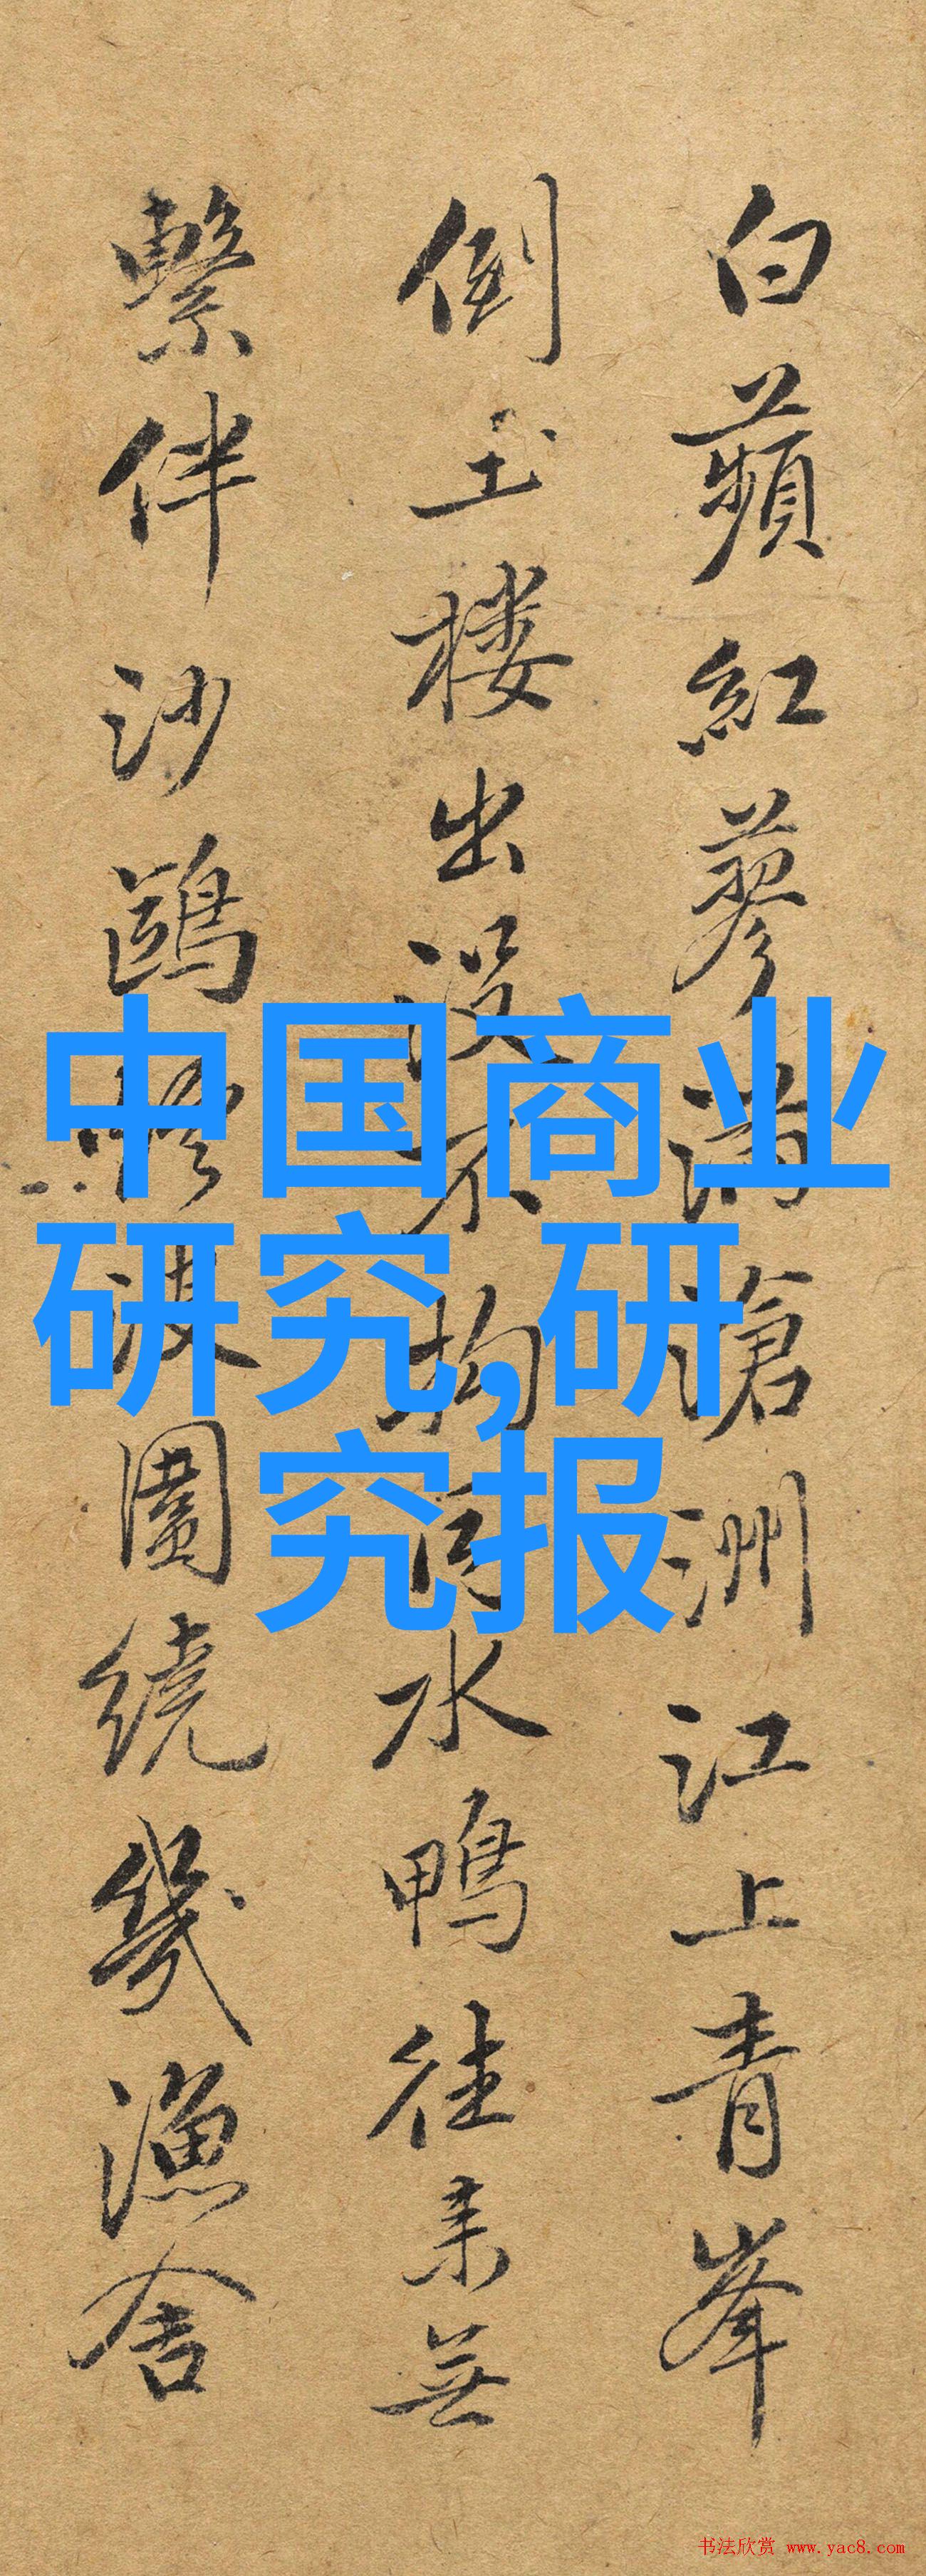 白蘋紅蓼满滄洲江上青峯
倒玉楼出没不拘同水鴨往来無
繫伴沙鷗波圍繞幾漁舍
中国商业
研究,研
究报
书法欣赏 www.yac8.com